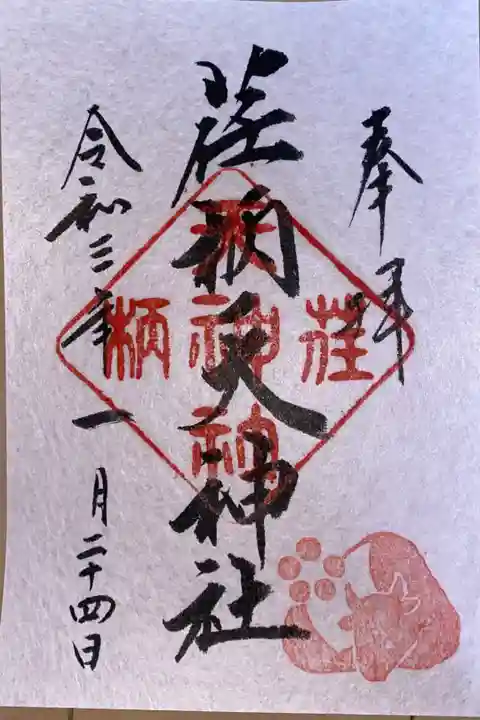 奉拝
荏柄天神社
令和三年一月二十四日
荏
柄
天
神
社